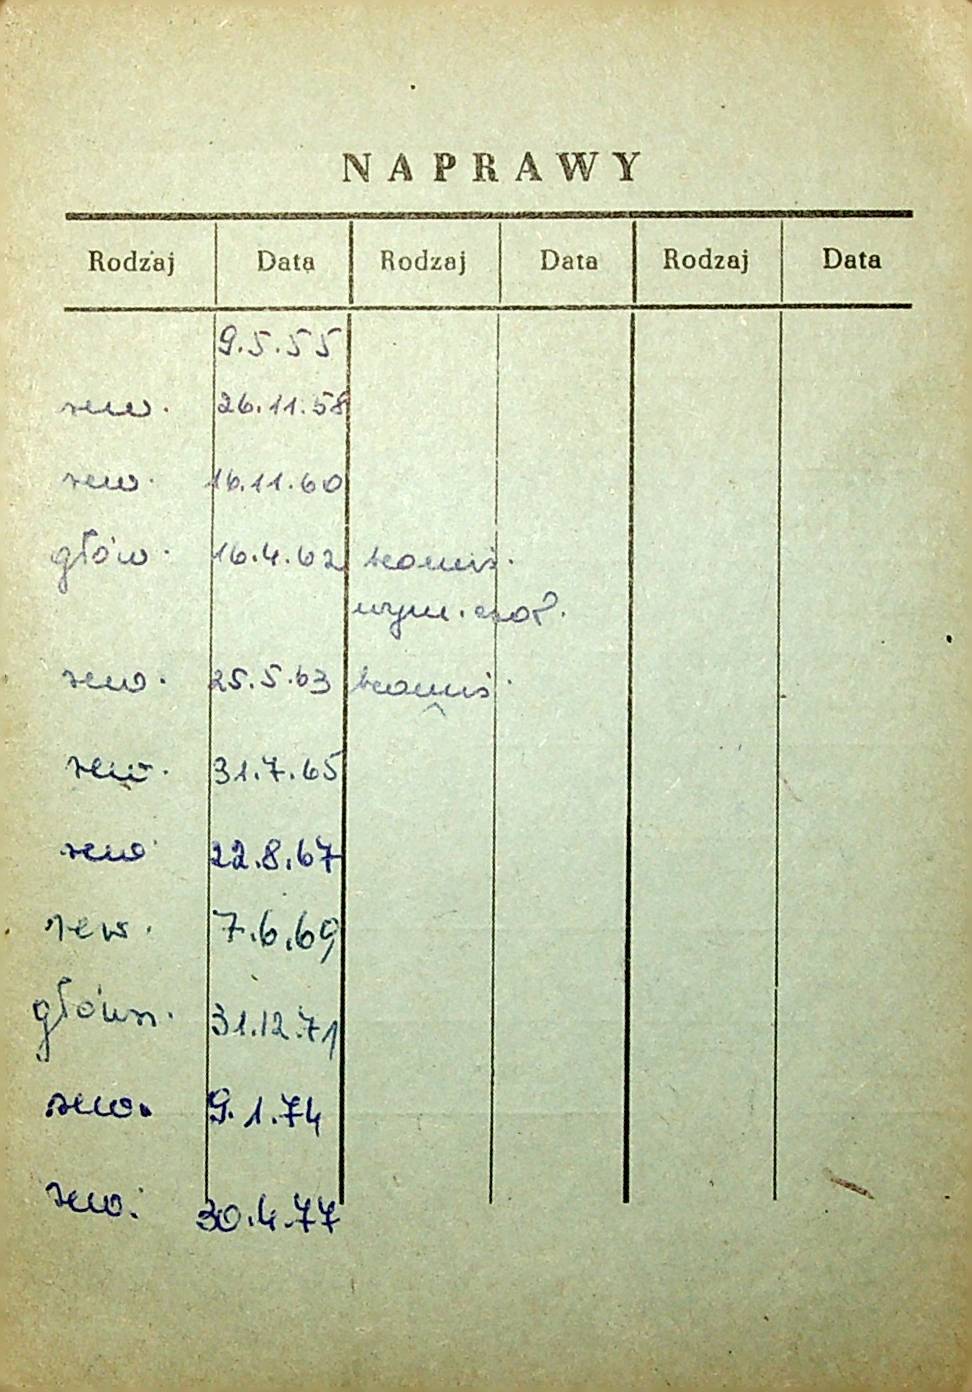 NAPRAWY
Rodzaj Data Rodzaj Data Rodzaj Data
9.5.55
rew. 26.11.58
rew. 16.11.60
głów. 16.4.62
wym.
rew. 25.5.63
rew. 31.7.65
rew 22.8.67
rew. 7.6.69
główn. 31.12.71
rew. 9.1.74
rew. 30.4.77